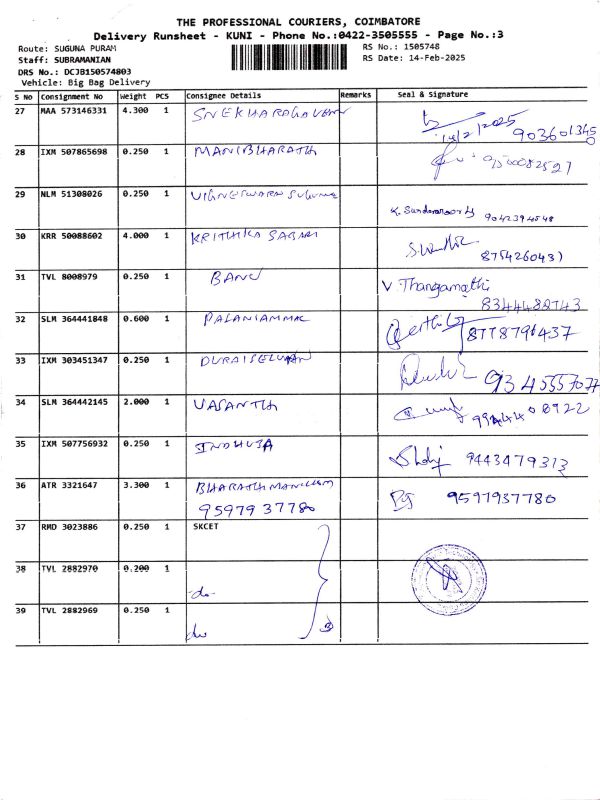 THE PROFESSIONAL COURIERS, COIMBATORE
Delivery Runsheet - KUNI - Phone No.:0422-3505555 - Page No.:3
Route: SUGUNA PURAM RS No.: 1505748
Staff: SUBRAMANIAN RS Date: 14-Feb-2025
DRS No.: DCJB150574803
Vehicle: Big Bag Delivery
S No Consignment No Weight PCS Consignee Details Remarks Seal & Signature
27 MAA 573146331 4.300 1 SNEKHARAGAVAN
14/2/2025
28 IXM 507865698 0.250 1 MANIBHARATH
29 NLM 51308026 0.250 1 VIGNESWARAN SUGUNA
9042394548
30 KRR 50088602 4.000 1 KRITHIKA SAGARI
31 TVL 8008979 0.250 1 BANU V Thangamathi
8344482743
32 SLM 364441848 0.600 1 PALANIAMMAL
8778791437
33 IXM 303451347 0.250 1 DURAISELVAN
9345557077
34 SLM 364442145 2.000 1 VASANTH
35 IXM 507756932 0.250 1 INDHUJA 9443479313
36 ATR 3321647 3.300 1 BHARATH MANICKAM
9597937780 9597937780
37 RMD 3023886 0.250 1 SKCET
38 TVL 2882970 0.200 1
-do-
39 TVL 2882969 0.250 1
do 3